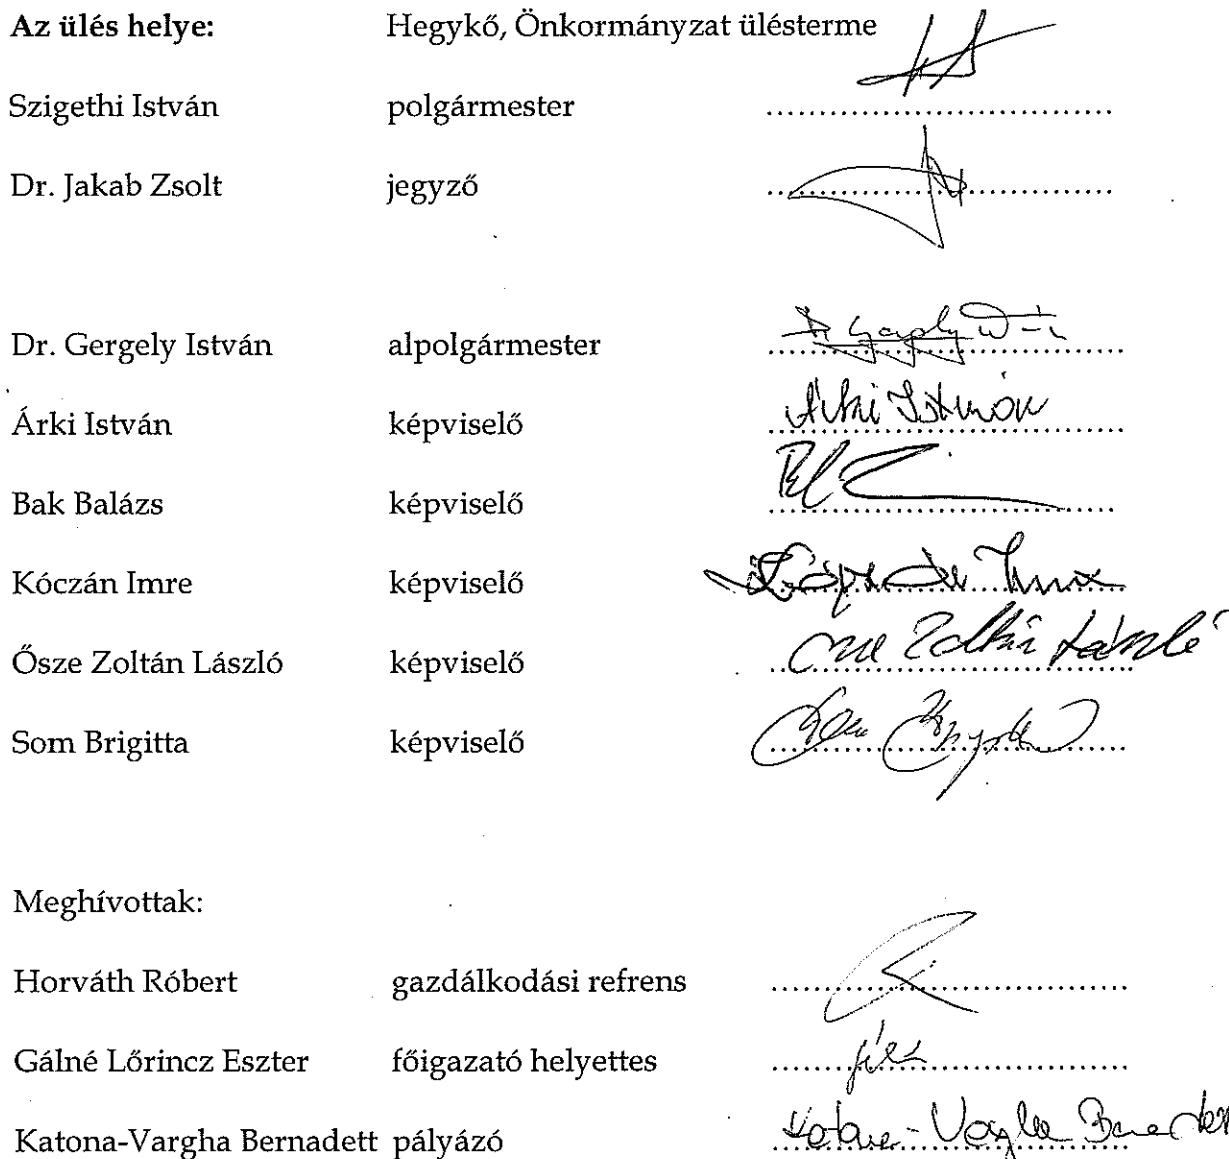 Az ülés helye: Hegykő, Önkormányzat ülésterme
Szigethi István polgármester ................................
Dr. Jakab Zsolt jegyző ................................
Dr. Gergely István alpolgármester ................................
Árki István képviselő Árki István
Bak Balázs képviselő ................................
Kóczán Imre képviselő ................................
Ősze Zoltán László képviselő Ősze Zoltán László
Som Brigitta képviselő ................................
Meghívottak:
Horváth Róbert gazdálkodási refrens ................................
Gálné Lőrincz Eszter főigazató helyettes ................................
Katona-Vargha Bernadett pályázó ................................